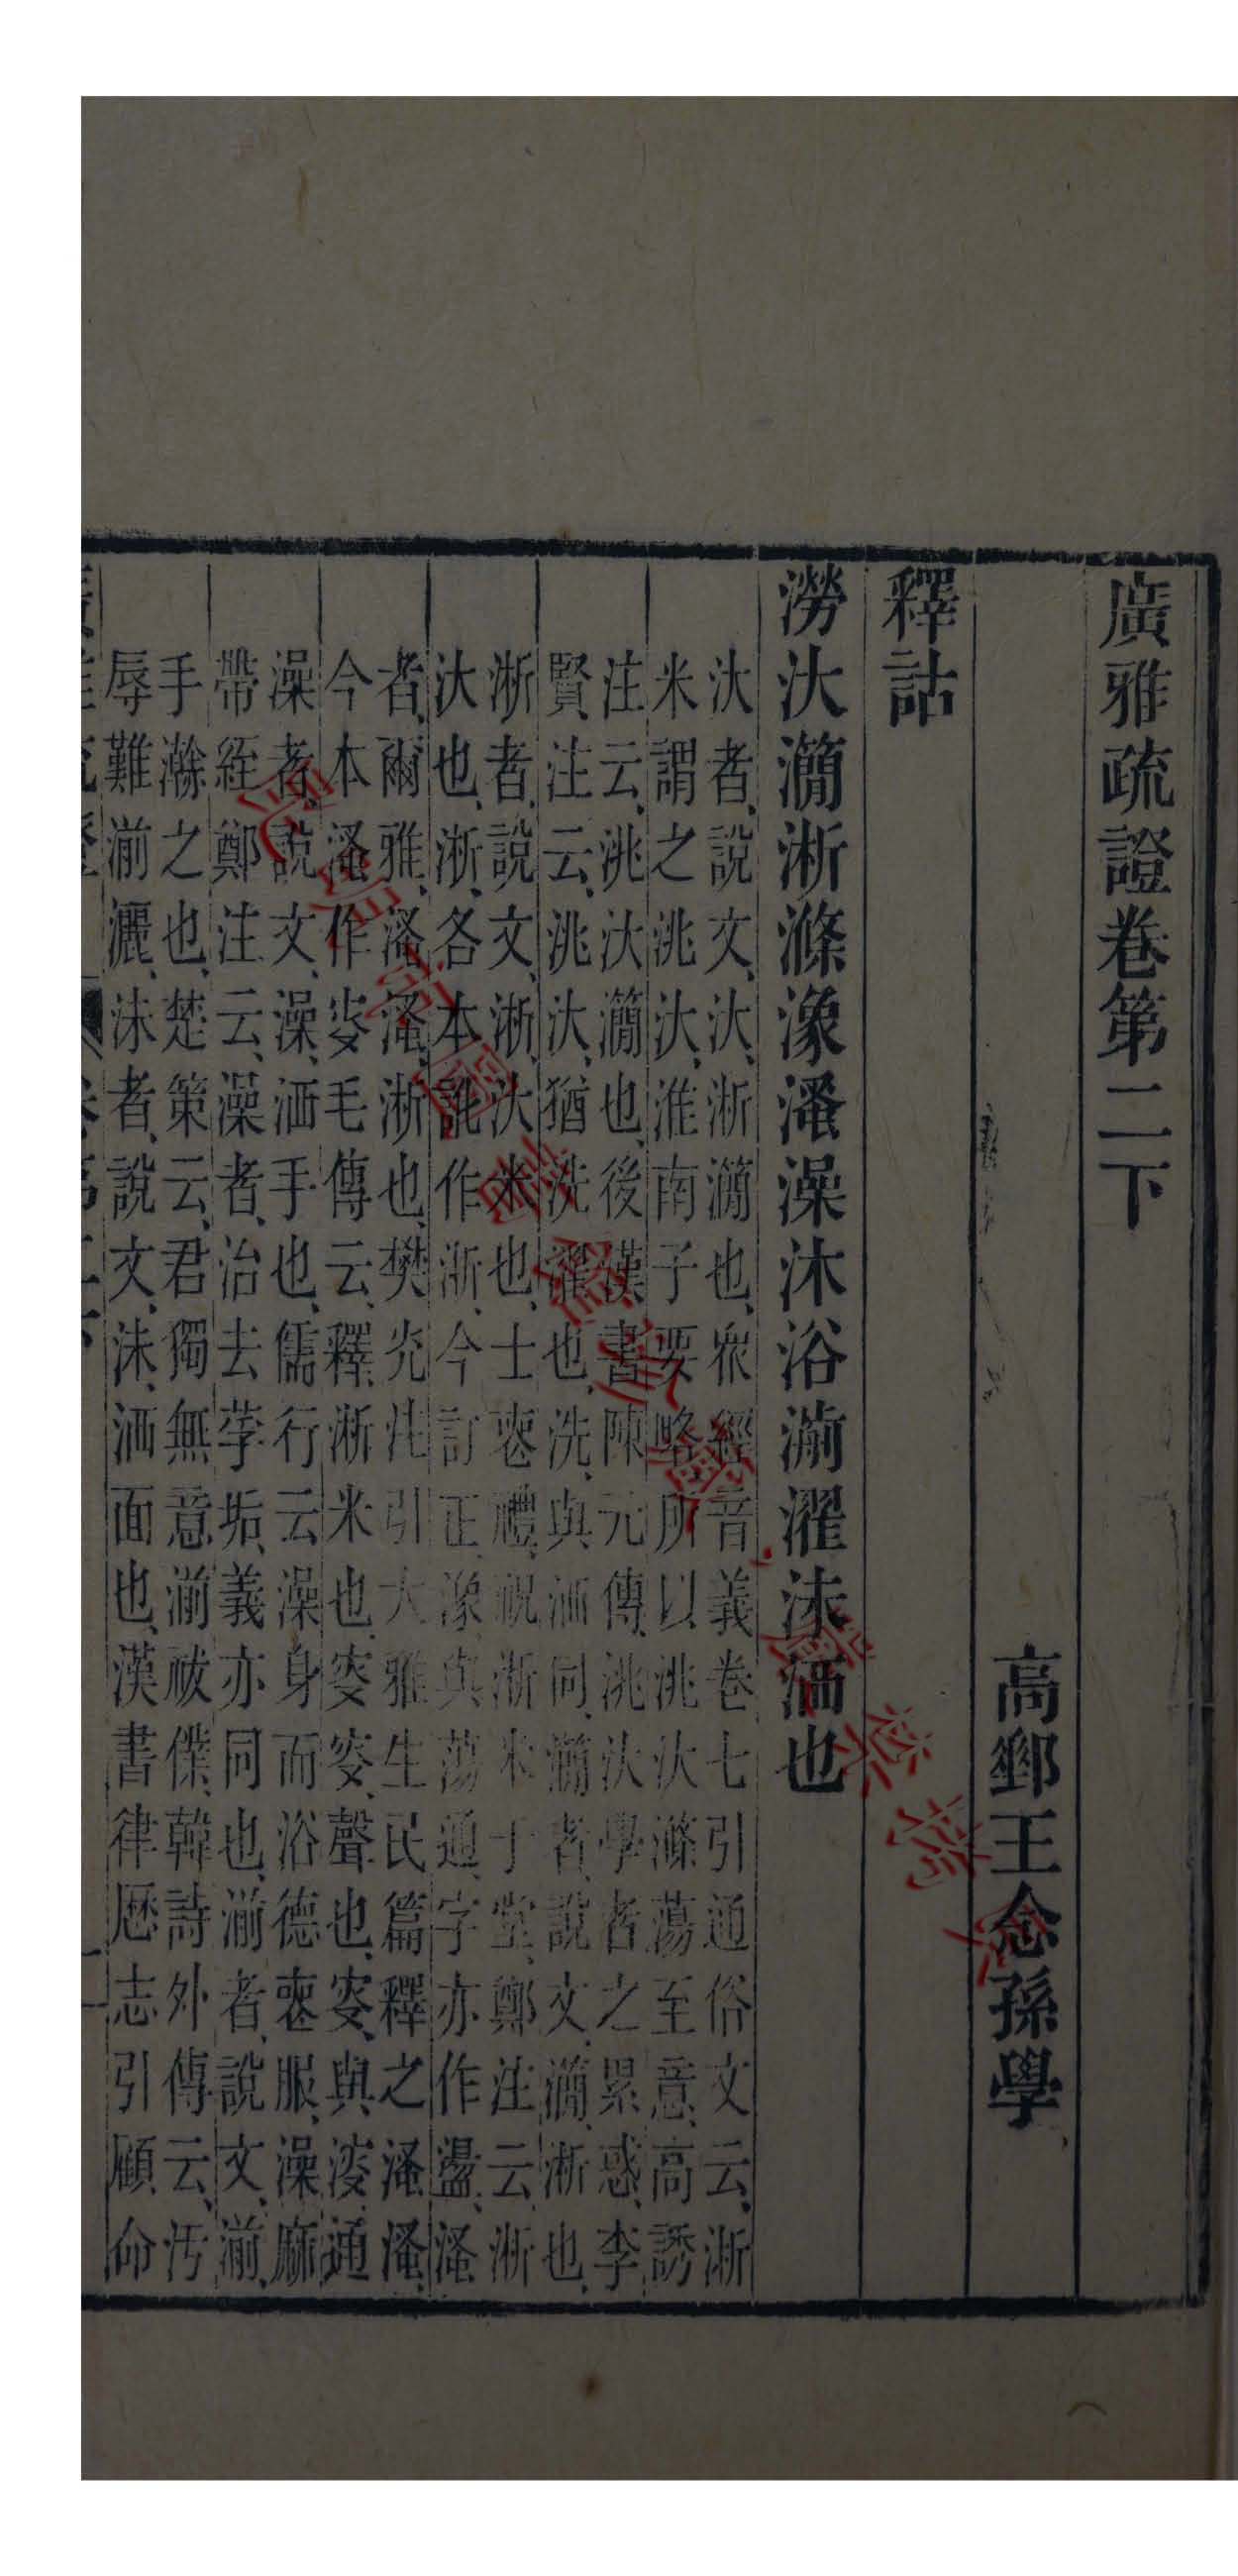 廣雅疏證卷第二下
高郵王念孫學
釋詁
澇汏灡淅滌潒溞澡沐浴湔濯沬洒也
汏者、說文、汏、淅灡也、眾經音義卷七引通俗文云、淅
米謂之洮汏、淮南子要略、所以洮汏滌蕩至意、高誘
注云、洮汏灡也、後漢書陳元傳、洮汏學者之累惑、李
賢注云、洮汏、猶洗濯也、洗、與洒同、灡者、說文、灡、淅也、
淅者、說文、淅、汏米也、士喪禮、祝淅米于堂、鄭注云、淅
汏也、淅、各本訛作淅、今訂正、潒與蕩通、字亦作盪、溞
者、爾雅、溞溞、淅也、樊光注引大雅生民篇釋之溞溞、
今本溞作叟、毛傳云、釋、淅米也、叟叟、聲也、叟、與溲通
澡者、說文、澡、洒手也、儒行云、澡身而浴德、喪服、澡麻
帶絰、鄭注云、澡者、治去莩垢、義亦同也、湔者、說文、湔、
手澣之也、楚策云、君獨無意湔祓僕、韓詩外傳云、汚
辱難湔灑、沬者、說文、沬、洒面也、漢書律厤志引顧命